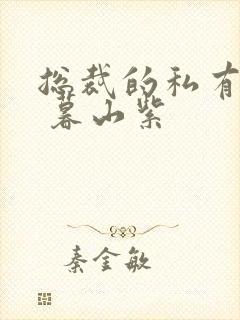 总裁的私有
暮山紫
秦金敏